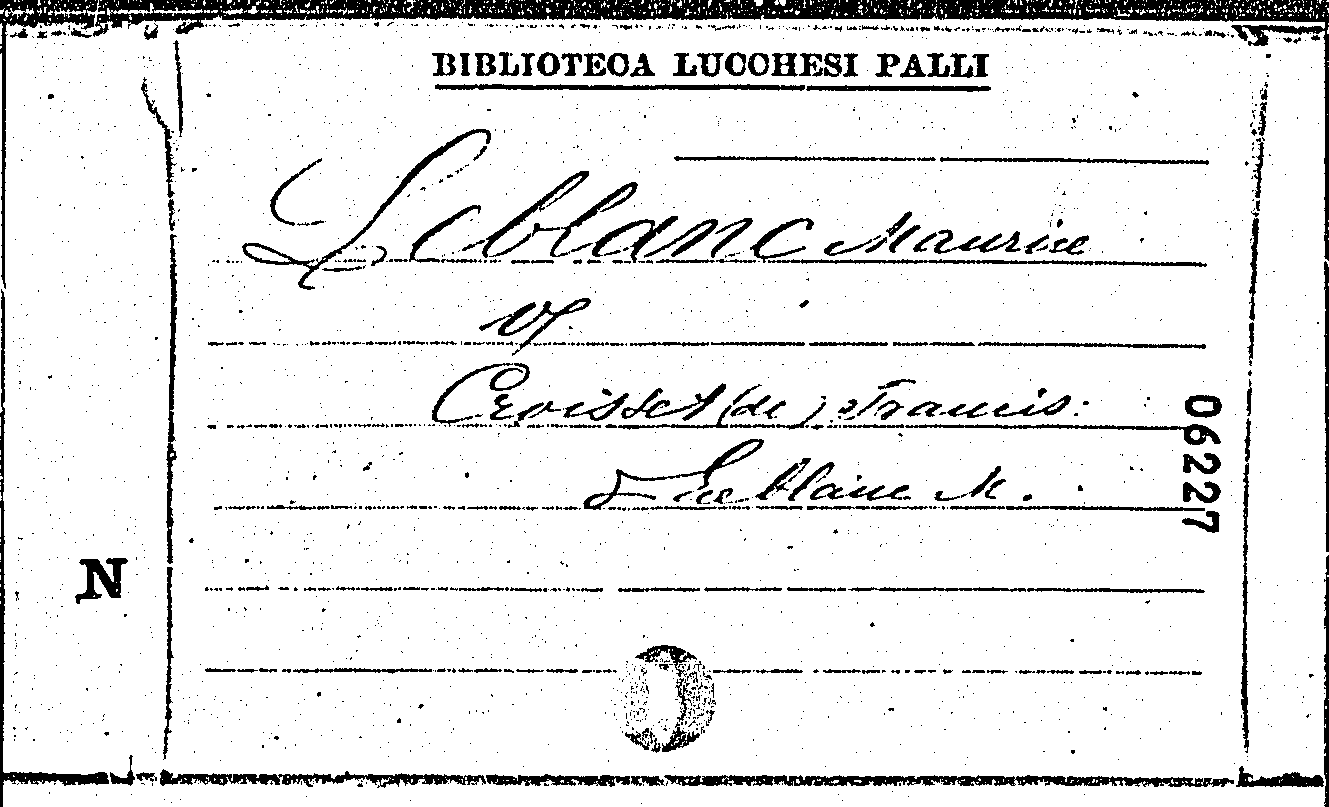 BIBLIOTECA LUCCHESI PALLI
Leblanc Maurice
V
Croisset (de) Francis.
& Leblanc M.
06227
N